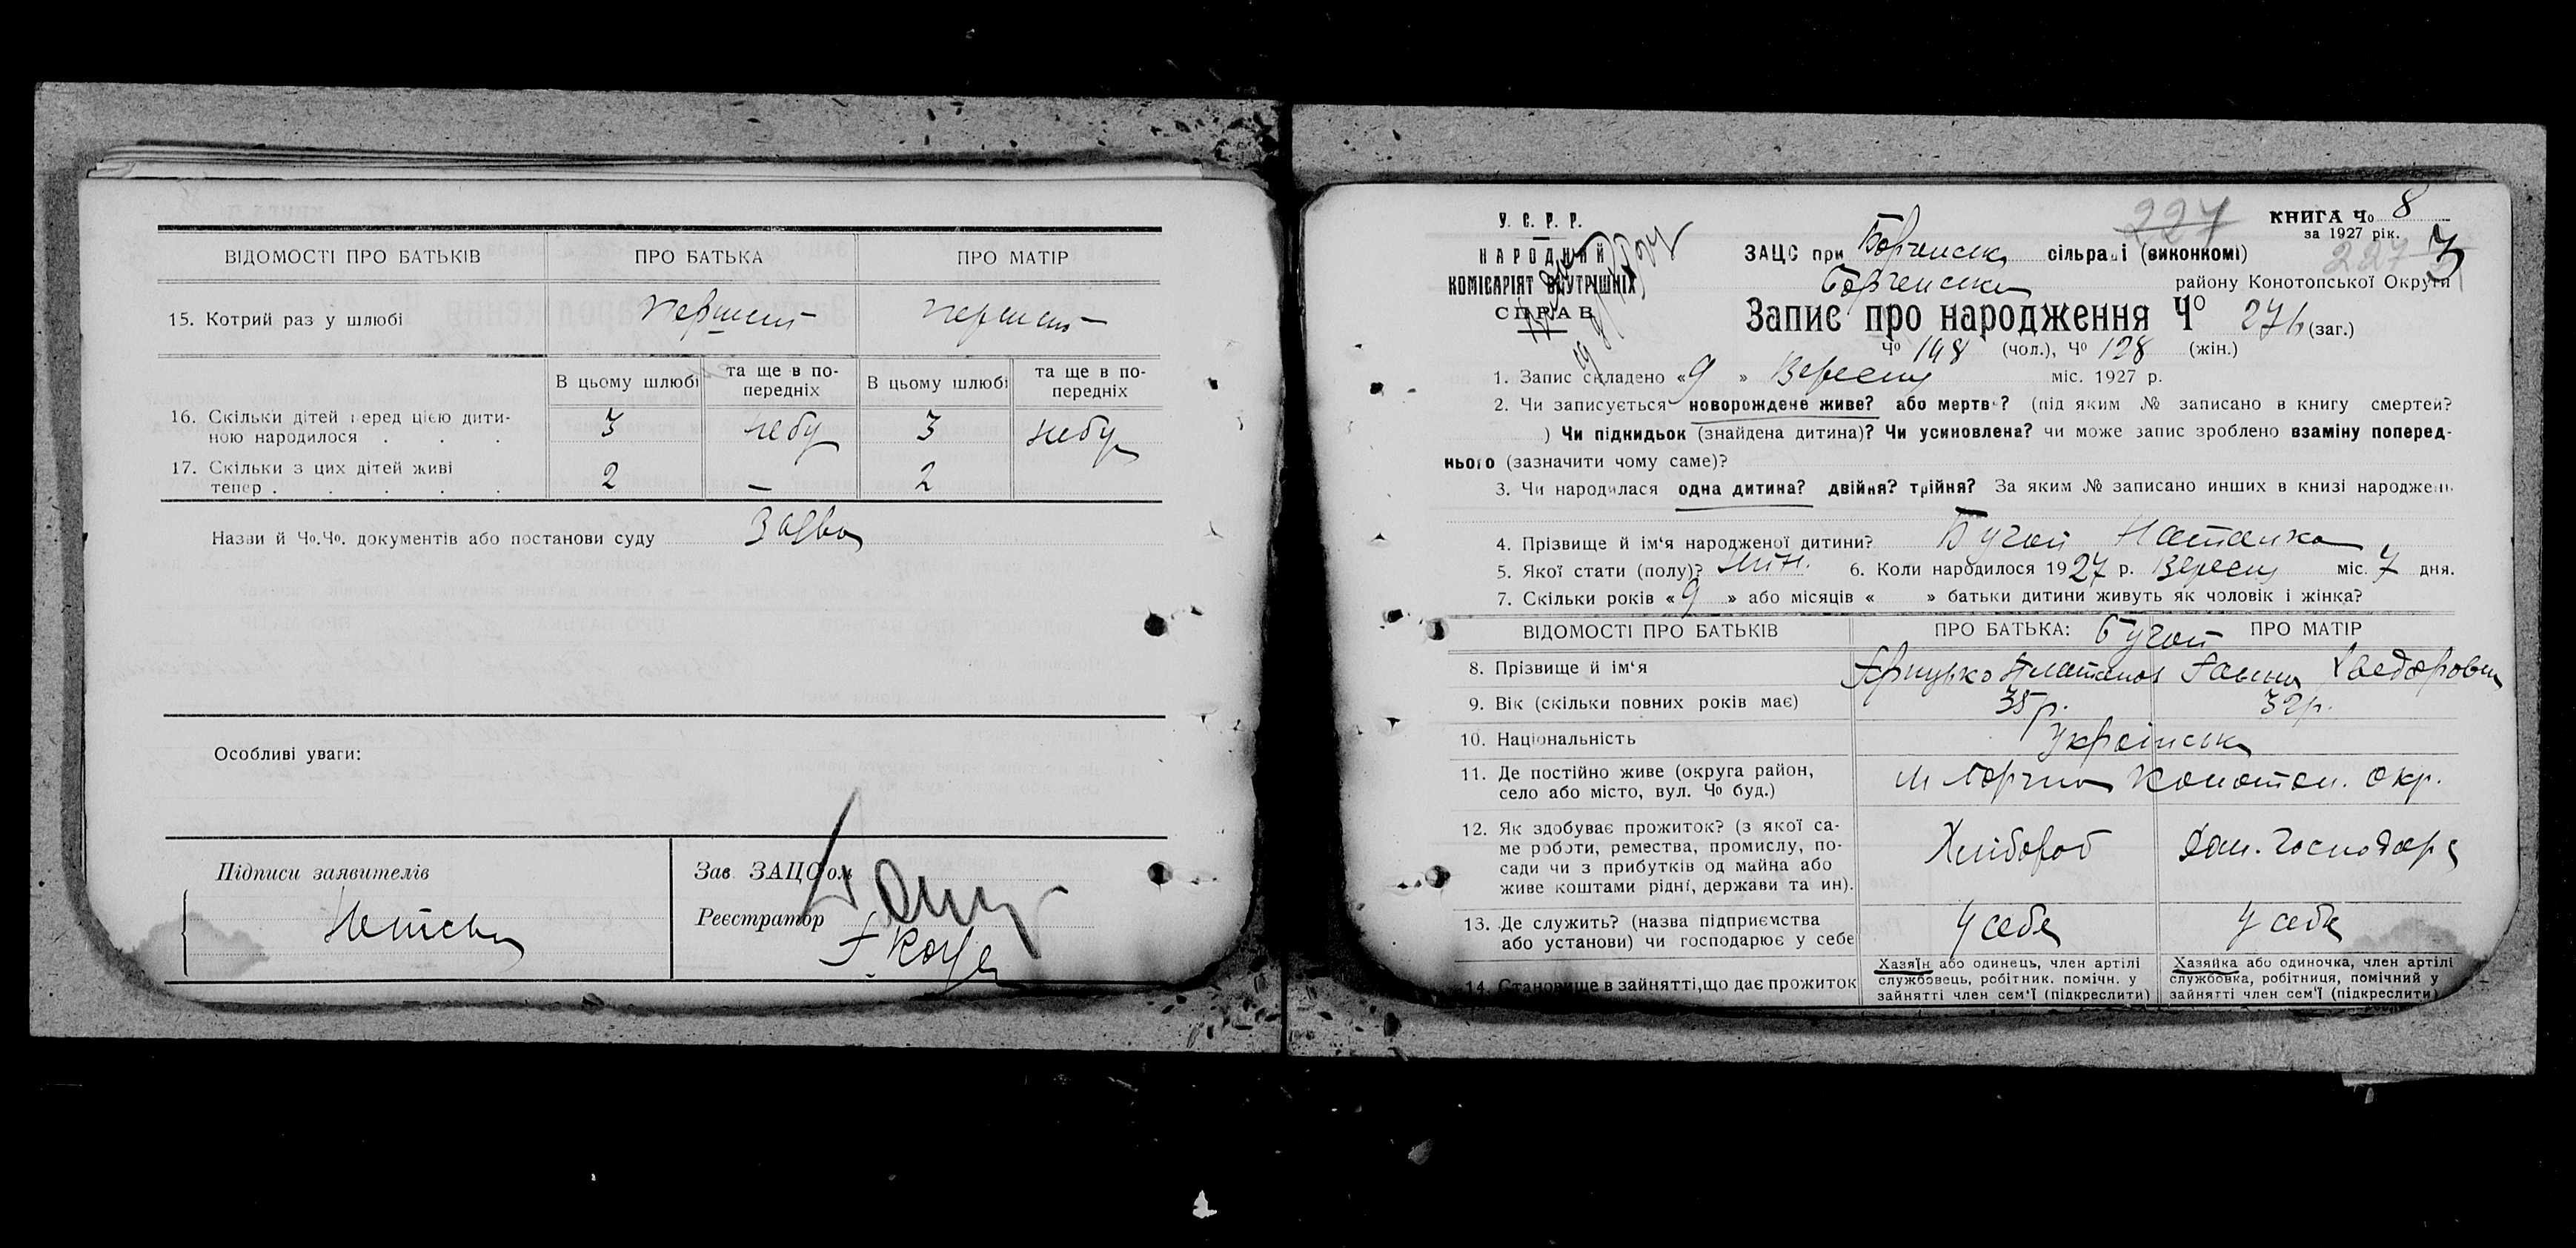 ВІДОМОСТІ ПРО БАТЬКІВ ПРО БАТЬКА ПРО МАТІР
15. Котрий раз у шлюбі перший перший
В цьому шлюбі та ще в по-передніх В цьому шлюбі та ще в по-передніх
16. Скільки дітей перед цією дити-
ною народилося . . . 3 небу 3 небу
17. Скільки з цих дітей живі
тепер . . . . . 2 — 2
Назви й Чо.Чо. документів або постанови суду Заява
Особливі уваги:
Підписи заявителів Зав. ЗАЦС'ом
Реєстратор
У. С. Р. Р.
НАРОДНИЙ
КОМІСАРІЯТ ВНУТРІШНІХ
СПРАВ
227
КНИГА Чо 8
за 1927 рік.
227 3
ЗАЦС при Борзенськ сільраді (виконкомі)
Борзенськ району Конотопської Округи
Запис про народження Чо 276 (заг.)
Чо 148 (чол.), Чо 128 (жін.)
1. Запис складено «9» Вересня міс. 1927 р.
2. Чи записується новорождене живе? або мертве? (під яким № записано в книгу смертей?
) Чи підкидьок (знайдена дитина)? Чи усиновлена? чи може запис зроблено взаміну поперед-
нього (зазначити чому саме)?
3. Чи народилася одна дитина? двійня? трійня? За яким № записано инших в книзі народжень
4. Прізвище й ім'я народженої дитини? Бугай Наталка
5. Якої стати (полу)? жін. 6. Коли народилося 1927 р. Вересня міс. 7 дня.
7. Скільки років «9» або місяців « » батьки дитини живуть як чоловік і жінка?
ВІДОМОСТІ ПРО БАТЬКІВ ПРО БАТЬКА: ПРО МАТІР
Бугай
8. Прізвище й ім'я Грицько Платонов Ганна Хведоровн
9. Вік (скільки повних років має) 35 р. 32 р.
10. Національність Українськ
11. Де постійно живе (округа район,
село або місто, вул. Чо буд.) м Борзна Конотоп. окр.
12. Як здобуває прожиток? (з якої са-
ме роботи, ремества, промислу, по-
сади чи з прибутків од майна або
живе коштами рідні, держави та ин). Хлібороб Дом. господар
13. Де служить? (назва підприємства
або установи) чи господарює у себе У себе У себе
14. Становище в зайнятті, що дає прожиток
Хазяїн або одинець, член артілі
службовець, робітник. помічн. у
зайнятті член сем'ї (підкреслити)
Хазяйка або одиночка, член артілі
службовка, робітниця, помічний у
зайнятті член сем'ї (підкреслити)